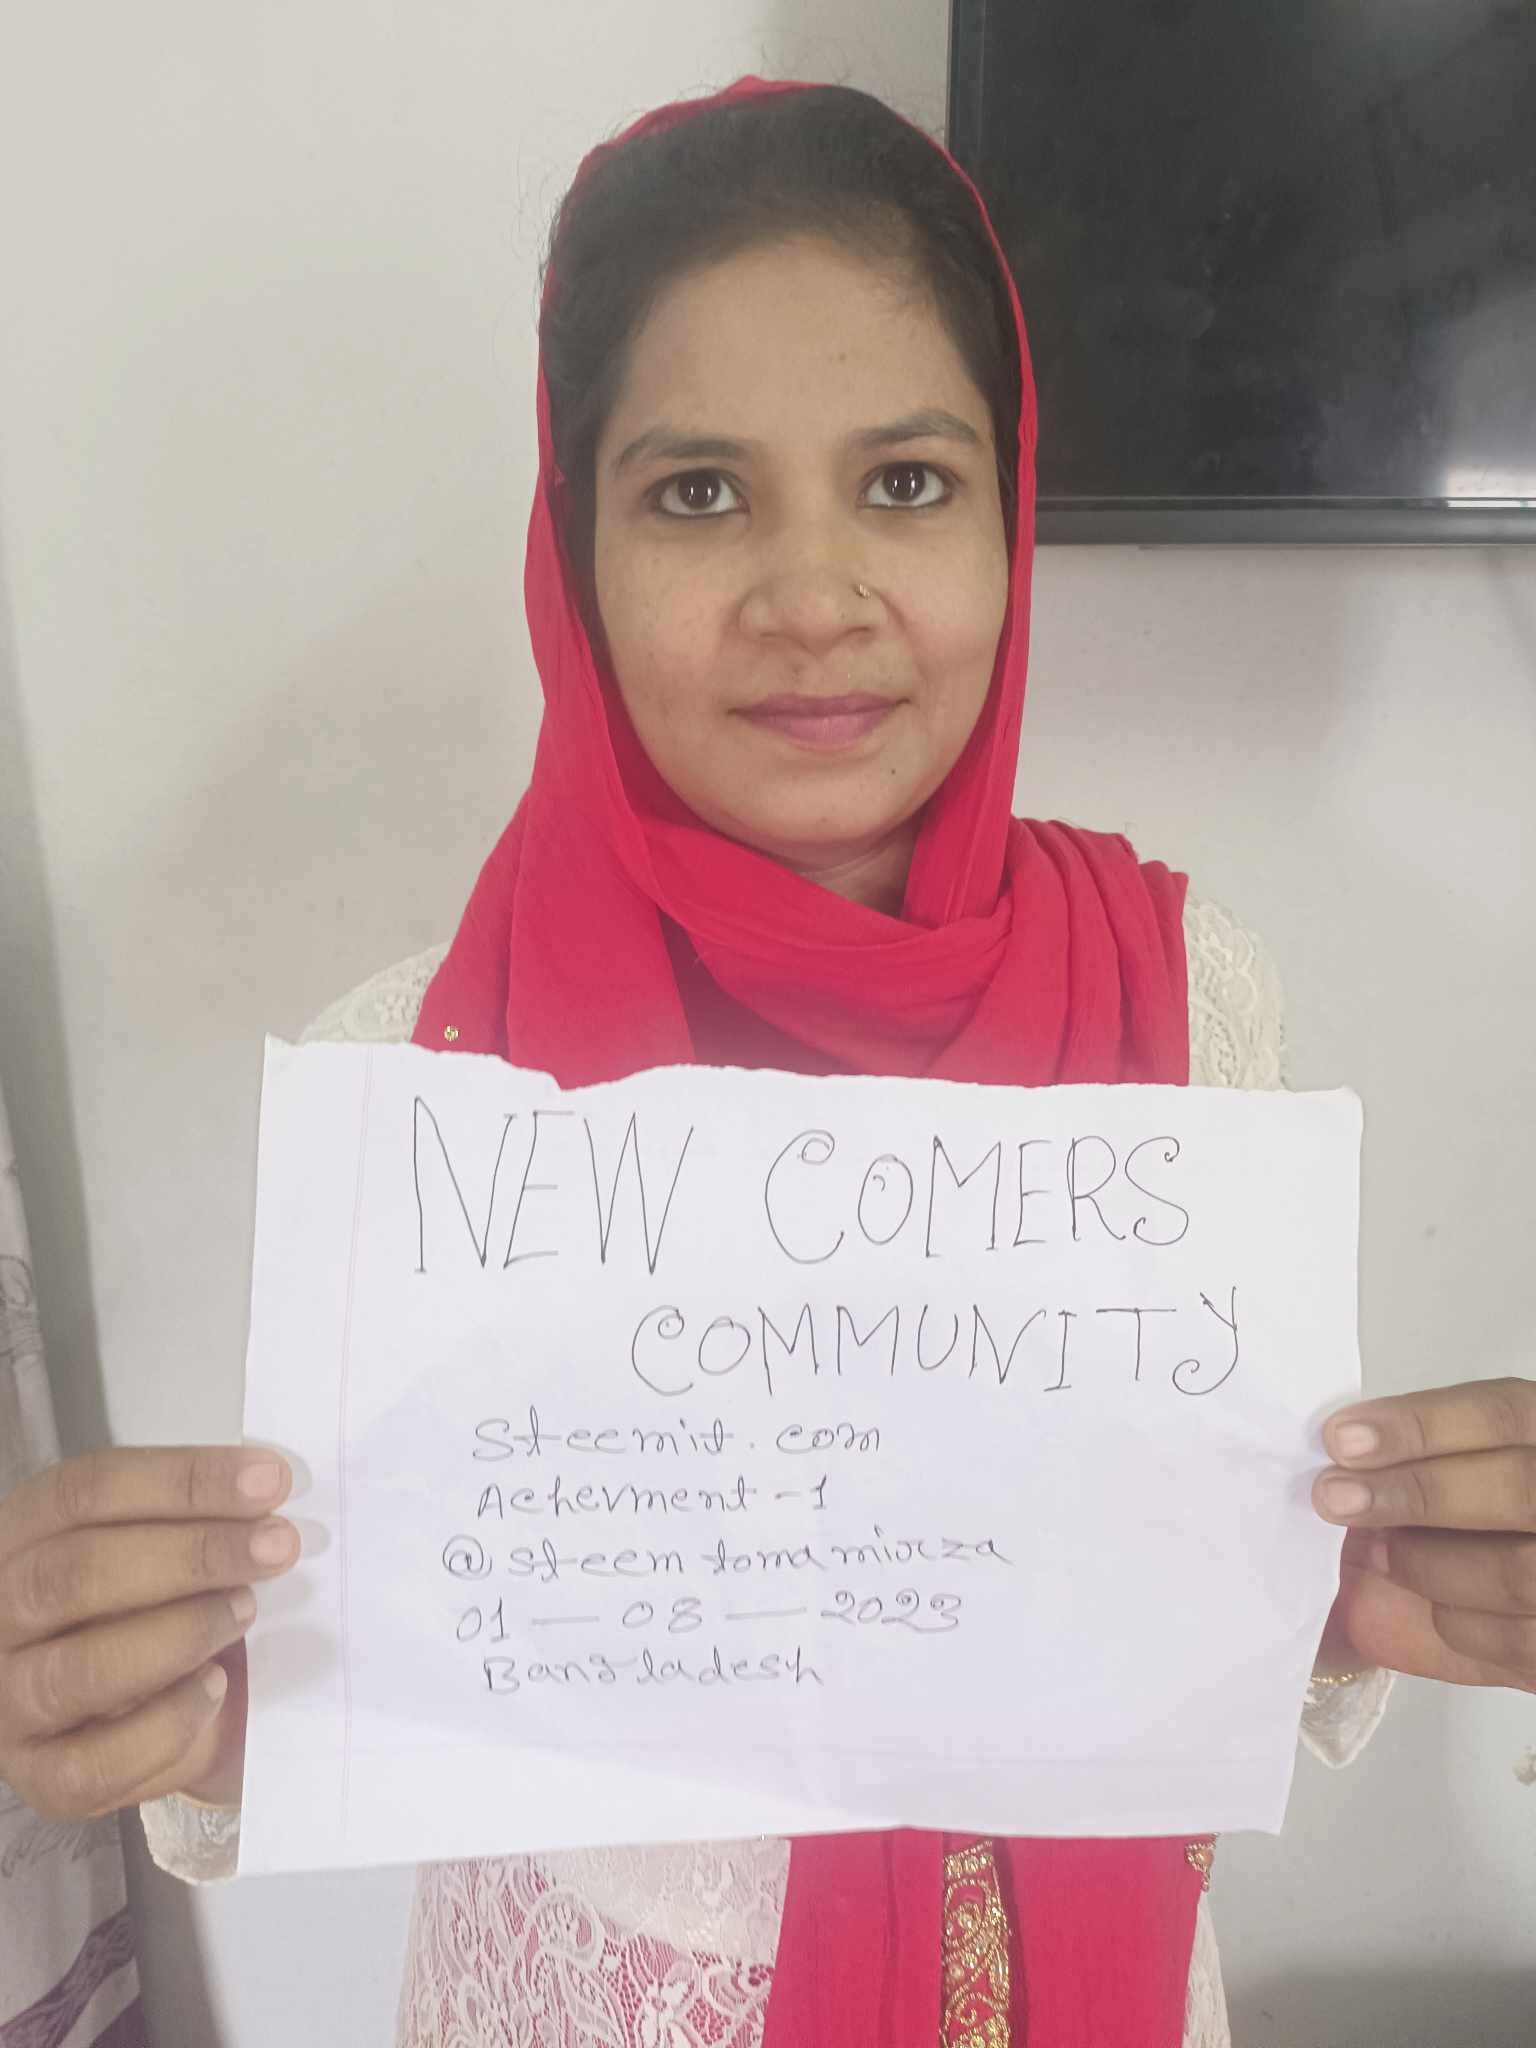 NEW COMERS
COMMUNITY
Steemit.com
Achevment-1
@steemtomamirza
01-08-2023
Bangladesh